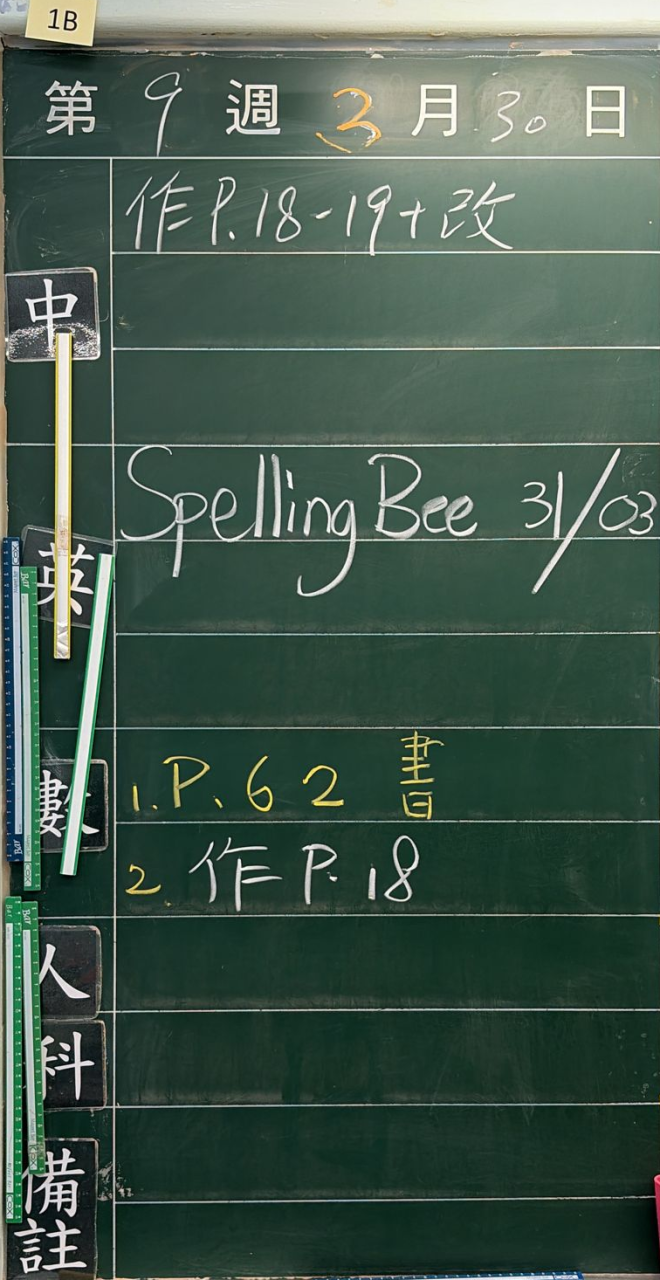 1B
第 9 週 3 月 30 日
作 P.18-19+改
中
Spelling Bee 31/03
英
數
1. P. 62 書
2. 作 P. 18
人
科
備
註